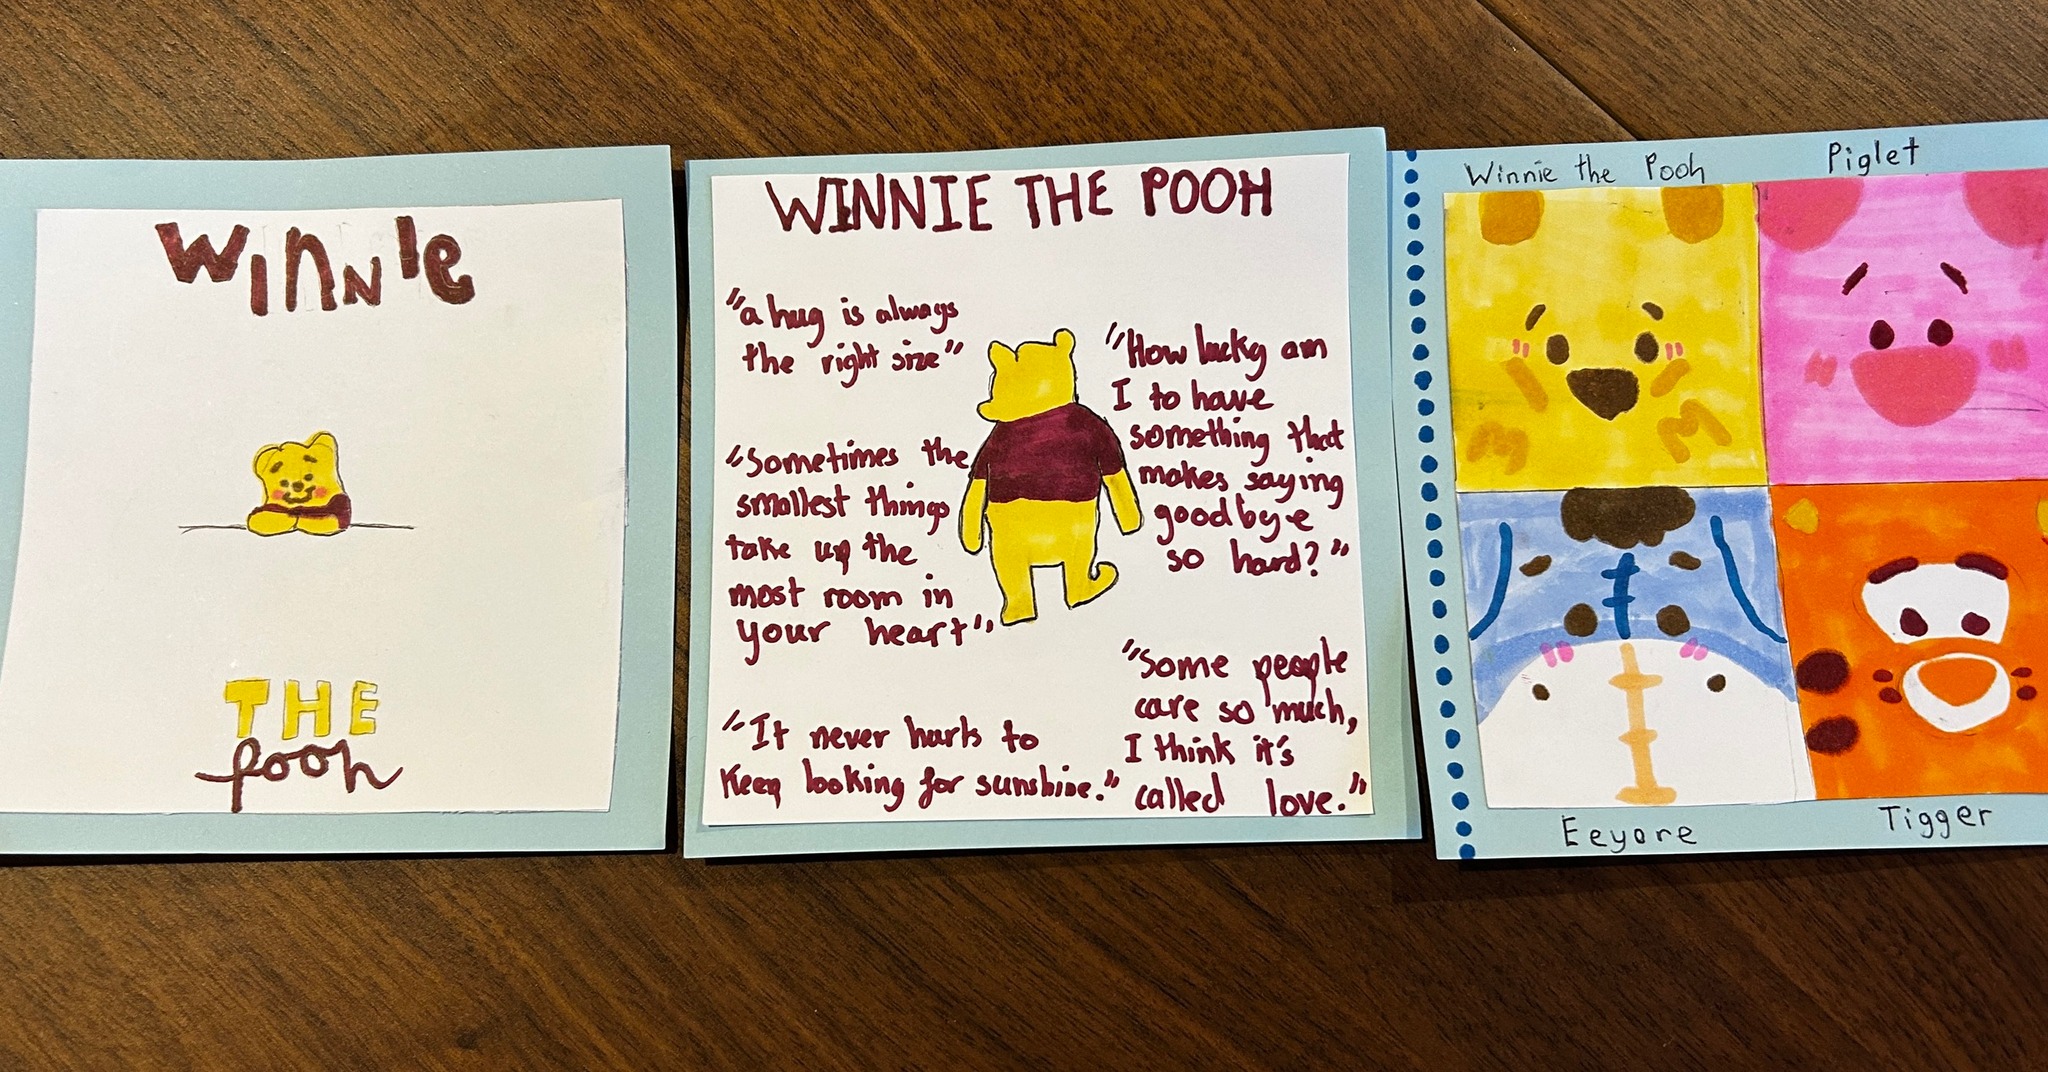 WINNIE
THE
pooh
WINNIE THE POOH
"a hug is always
the right size"
"Sometimes the
smallest things
take up the
most room in
your heart"
"It never hurts to
Keep looking for sunshine."
"How lucky am
I to have
something that
makes saying
goodbye
so hard?"
"Some people
care so much,
I think it's
called love."
Winnie the Pooh
Piglet
Eeyore
Tigger